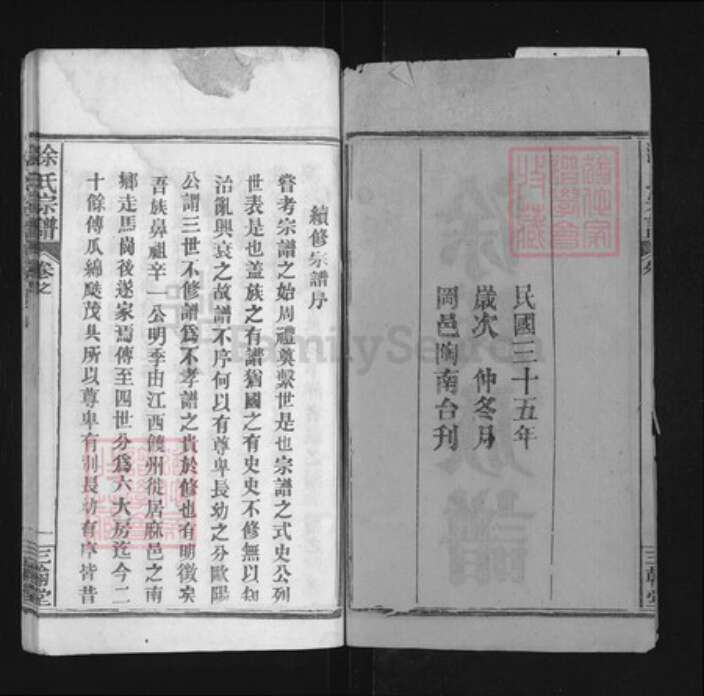 民國三十五年
歲次 仲冬月
岡邑陶南台刊
續修宗譜序
嘗考宗譜之始周禮奠繫世是也宗譜之式史公列
世表是也蓋族之有譜猶國之有史史不修無以知
治亂興衰之故譜不序何以有尊卑長幼之分歐陽
公謂三世不修譜為不孝譜之貴於修也有明徵矣
吾族鼻祖辛一公明季由江西饒州徙居麻邑之南
鄉走馬崗後遂家焉傳至四世分為六大房迄今二
十餘傳瓜綿瓞茂具所以尊卑有制長幼有序皆昔
徐氏宗譜 卷之
三翰堂
三翰堂
FamilySearch